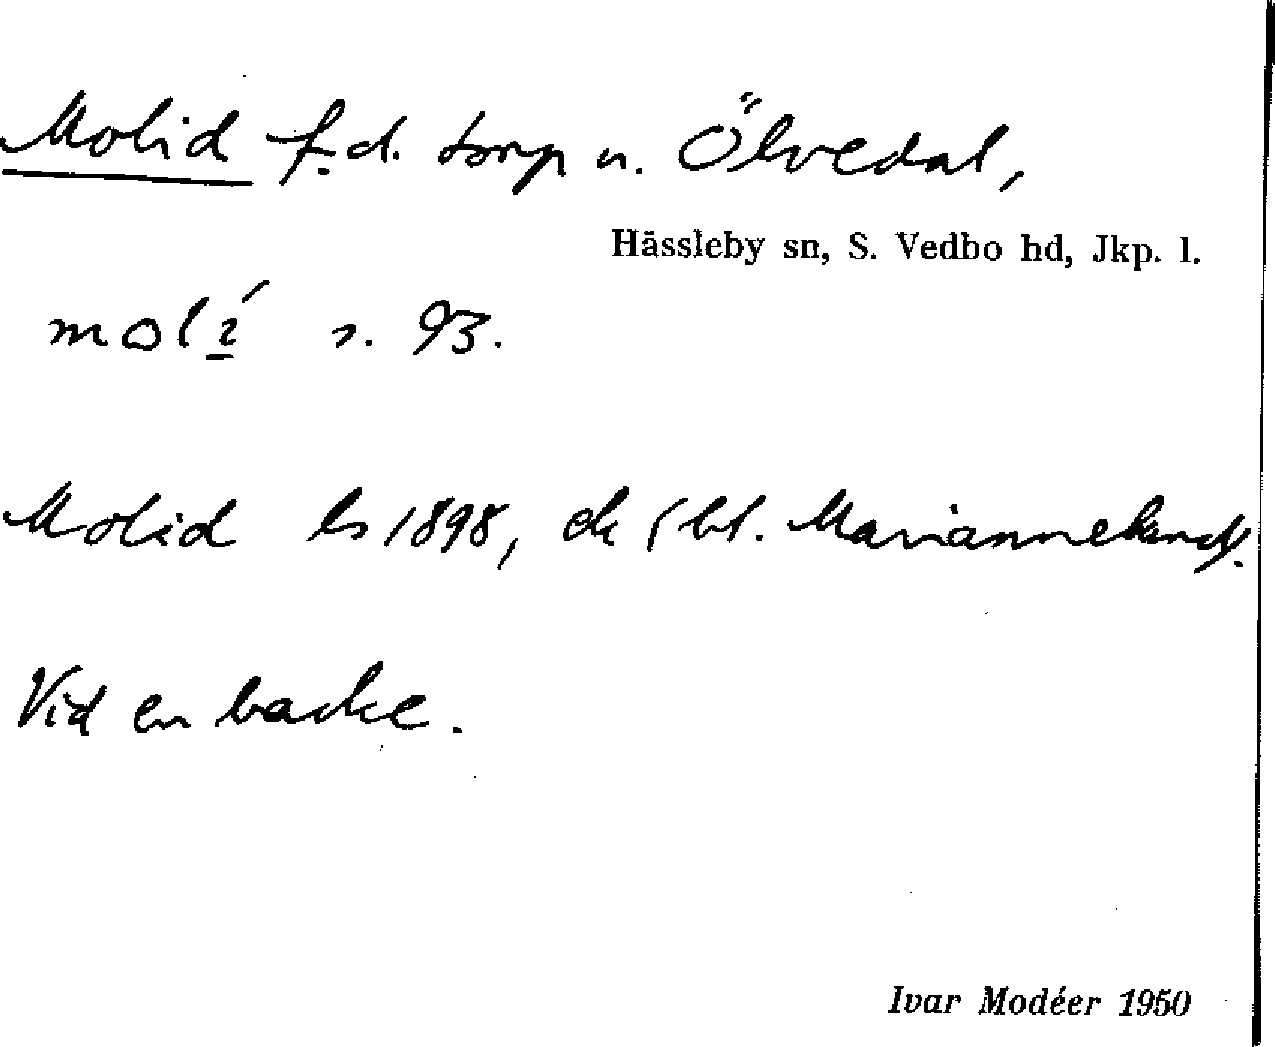 Molid f.d. torp u. Ölvedal,
Hässleby sn, S. Vedbo hd, Jkp. l.
molí s. 93.
Molid ls 1898, ek f bl. Mariannelund.
Vid en backe.
Ivar Modéer 1950